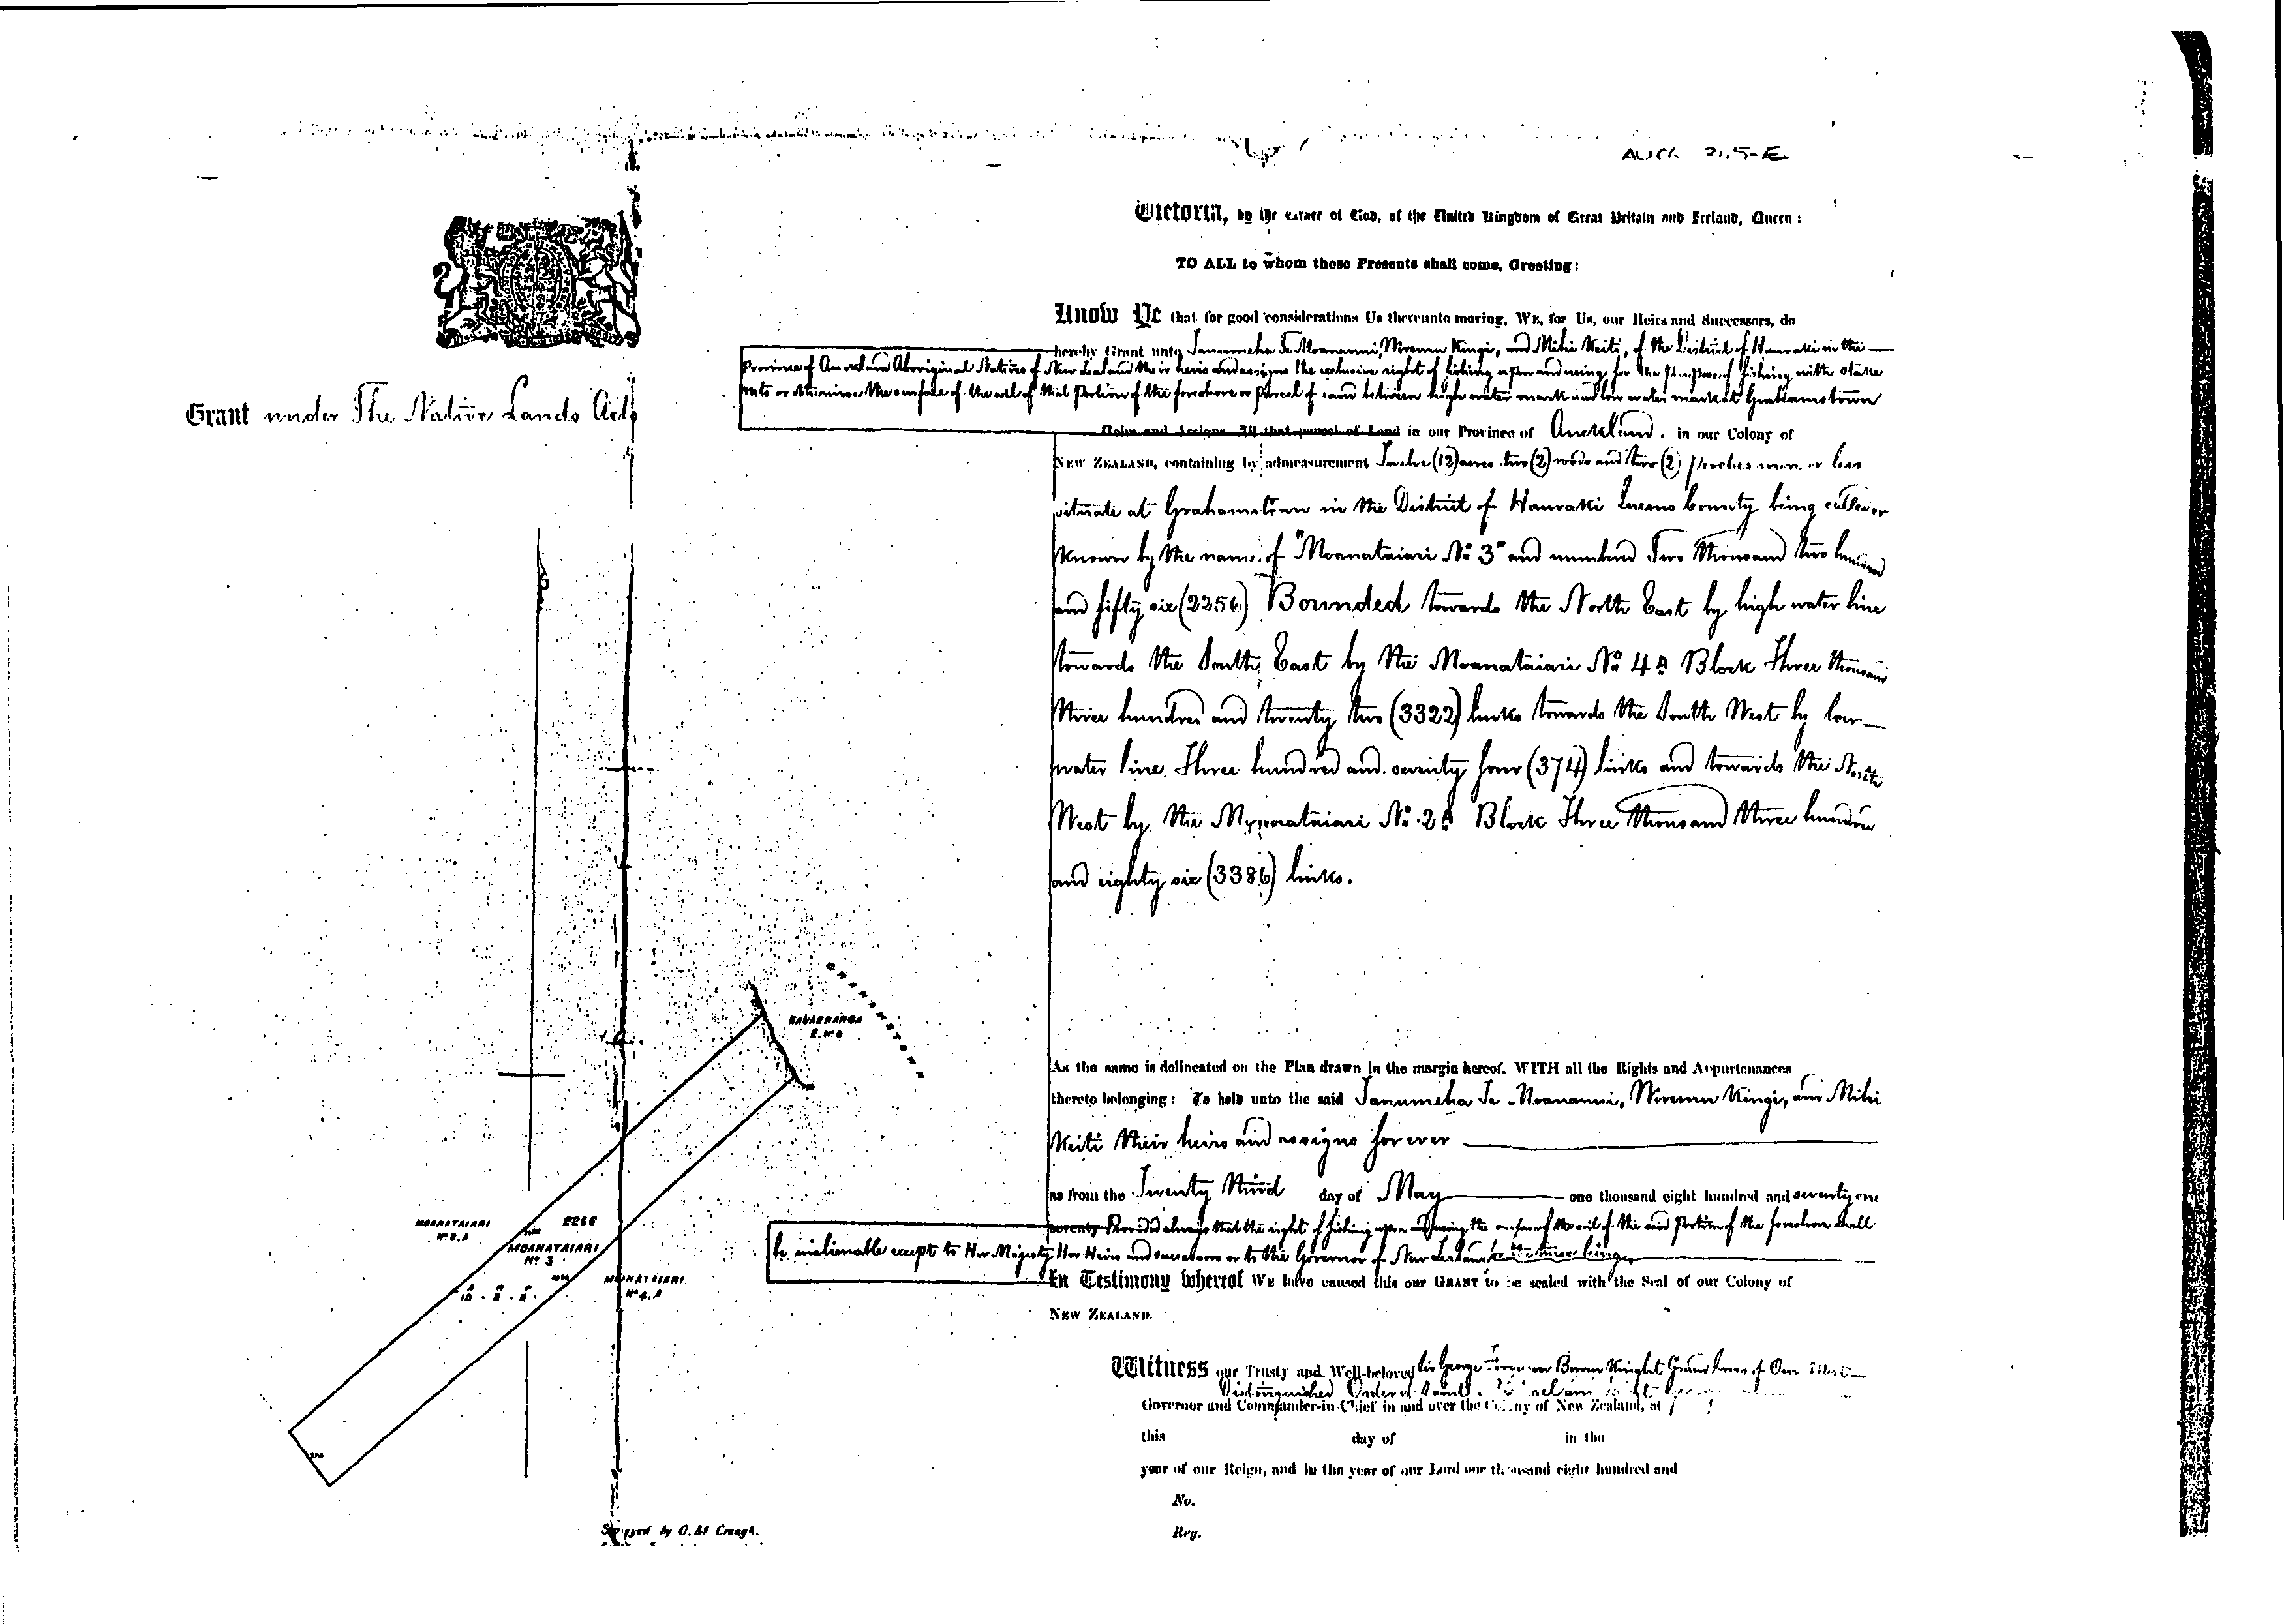 AUCK 21.5-E
Victoria, by the Grace of God, of the United Kingdom of Great Britain and Ireland, Queen:
TO ALL to whom these Presents shall come, Greeting:
Know Ye that for good considerations Us thereunto moving, WE, for Us, our Heirs and Successors, do
hereby Grant unto Tanumeha Te Moananui, Wiremu Kingi, and Mihi Keiti, of the District of Hauraki in the
Province of Auckland Aboriginal Natives of New Zealand their heirs and assigns the exclusive right of fishing upon and using for the purpose of fishing with stake
nets or otherwise the surface of the soil of that portion of the foreshore or parcel of land between high water mark and low water mark at Grahamstown
Grant under The Native Lands Act
Heirs and Assigns All that parcel of Land in our Province of Auckland. in our Colony of
NEW ZEALAND, containing by admeasurement Twelve (12) acres two (2) roods and two (2) perches more or less
situate at Grahamstown in the District of Hauraki Queens County being called or
known by the name of "Moanataiari No 3" and numbered Two thousand two hundred
and fifty six (2256) Bounded towards the North East by high water line
towards the South East by the Moanataiari No 4A Block Three thousand
three hundred and twenty two (3322) links towards the South West by low
water line Three hundred and seventy four (374) links and towards the North
West by the Moanataiari No. 2A Block Three thousand three hundred
and eighty six (3386) links.
GRAHAMSTOWN
KAUAERANGA
As the same is delineated on the Plan drawn in the margin hereof. WITH all the Rights and Appurtenances
thereto belonging: To hold unto the said Tanumeha Te Moananui, Wiremu Kingi, and Mihi
Keiti their heirs and assigns for ever
as from the Twenty third day of May one thousand eight hundred and seventy one
seventy Provided always that the right of fishing upon and using the surface of the soil of the said portion of the foreshore shall
be inalienable except to Her Majesty Her Heirs and successors or to the Governor of New Zealand for the time being
MOANATAIARI
2256
MOANATAIARI
No 3
MOANATAIARI
No 4.A
A R P
12 . 2 . 2 .
374
In Testimony whereof WE have caused this our GRANT to be sealed with the Seal of our Colony of
NEW ZEALAND.
Witness our Trusty and Well-beloved Sir George Ferguson Bowen Knight Grand Cross of Our Most
Distinguished Order of Saint
Governor and Commander-in-Chief in and over the Colony of New Zealand, at
this day of in the
year of our Reign, and in the year of our Lord one thousand eight hundred and
No.
Reg.
Surveyed by O. M. Creagh.